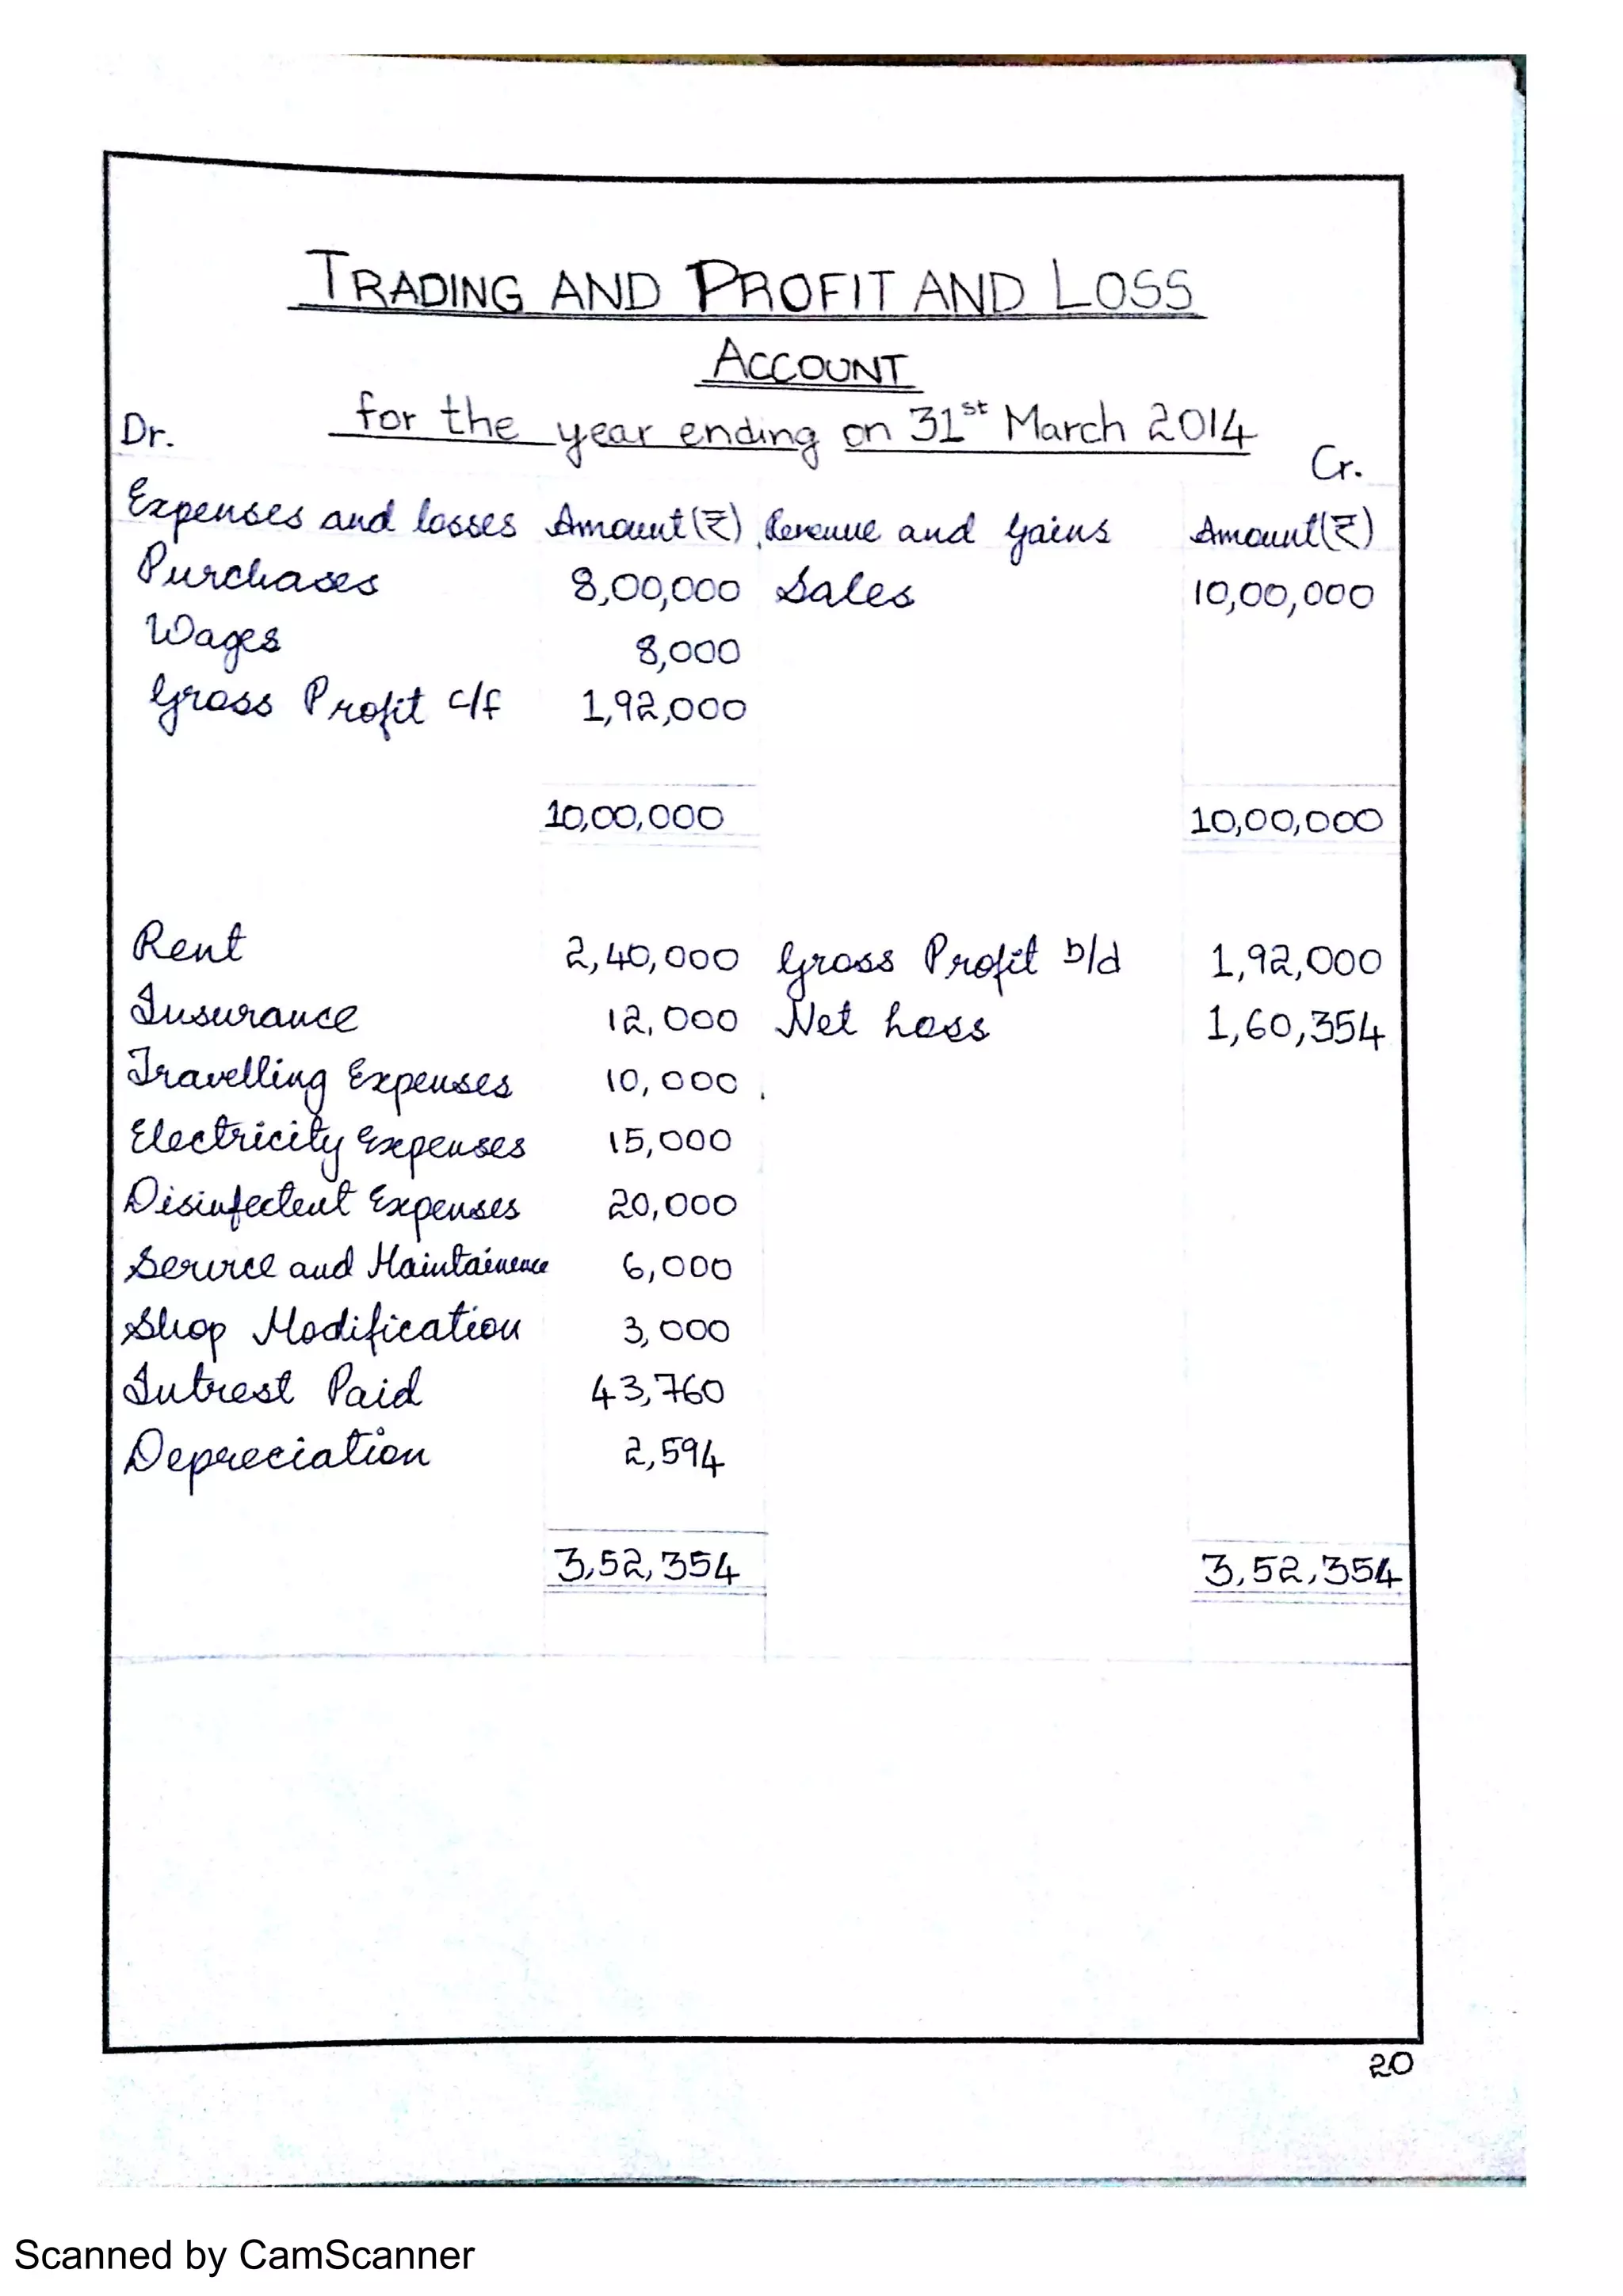 TRADING AND PROFIT AND LOSS
ACCOUNT
for the year ending on 31st March 2014
Dr. Cr.
Expenses and losses Amount(₹) Revenue and gains Amount(₹)
Purchases 8,00,000 Sales 10,00,000
Wages 8,000
Gross Profit c/f 1,92,000
10,00,000 10,00,000
Rent 2,40,000 Gross Profit b/d 1,92,000
Insurance 12,000 Net Loss 1,60,354
Travelling Expenses 10,000
Electricity Expenses 15,000
Disinfectent Expenses 20,000
Service and Maintainence 6,000
Shop Modification 3,000
Intrest Paid 43,760
Depreciation 2,594
3,52,354 3,52,354
20
Scanned by CamScanner